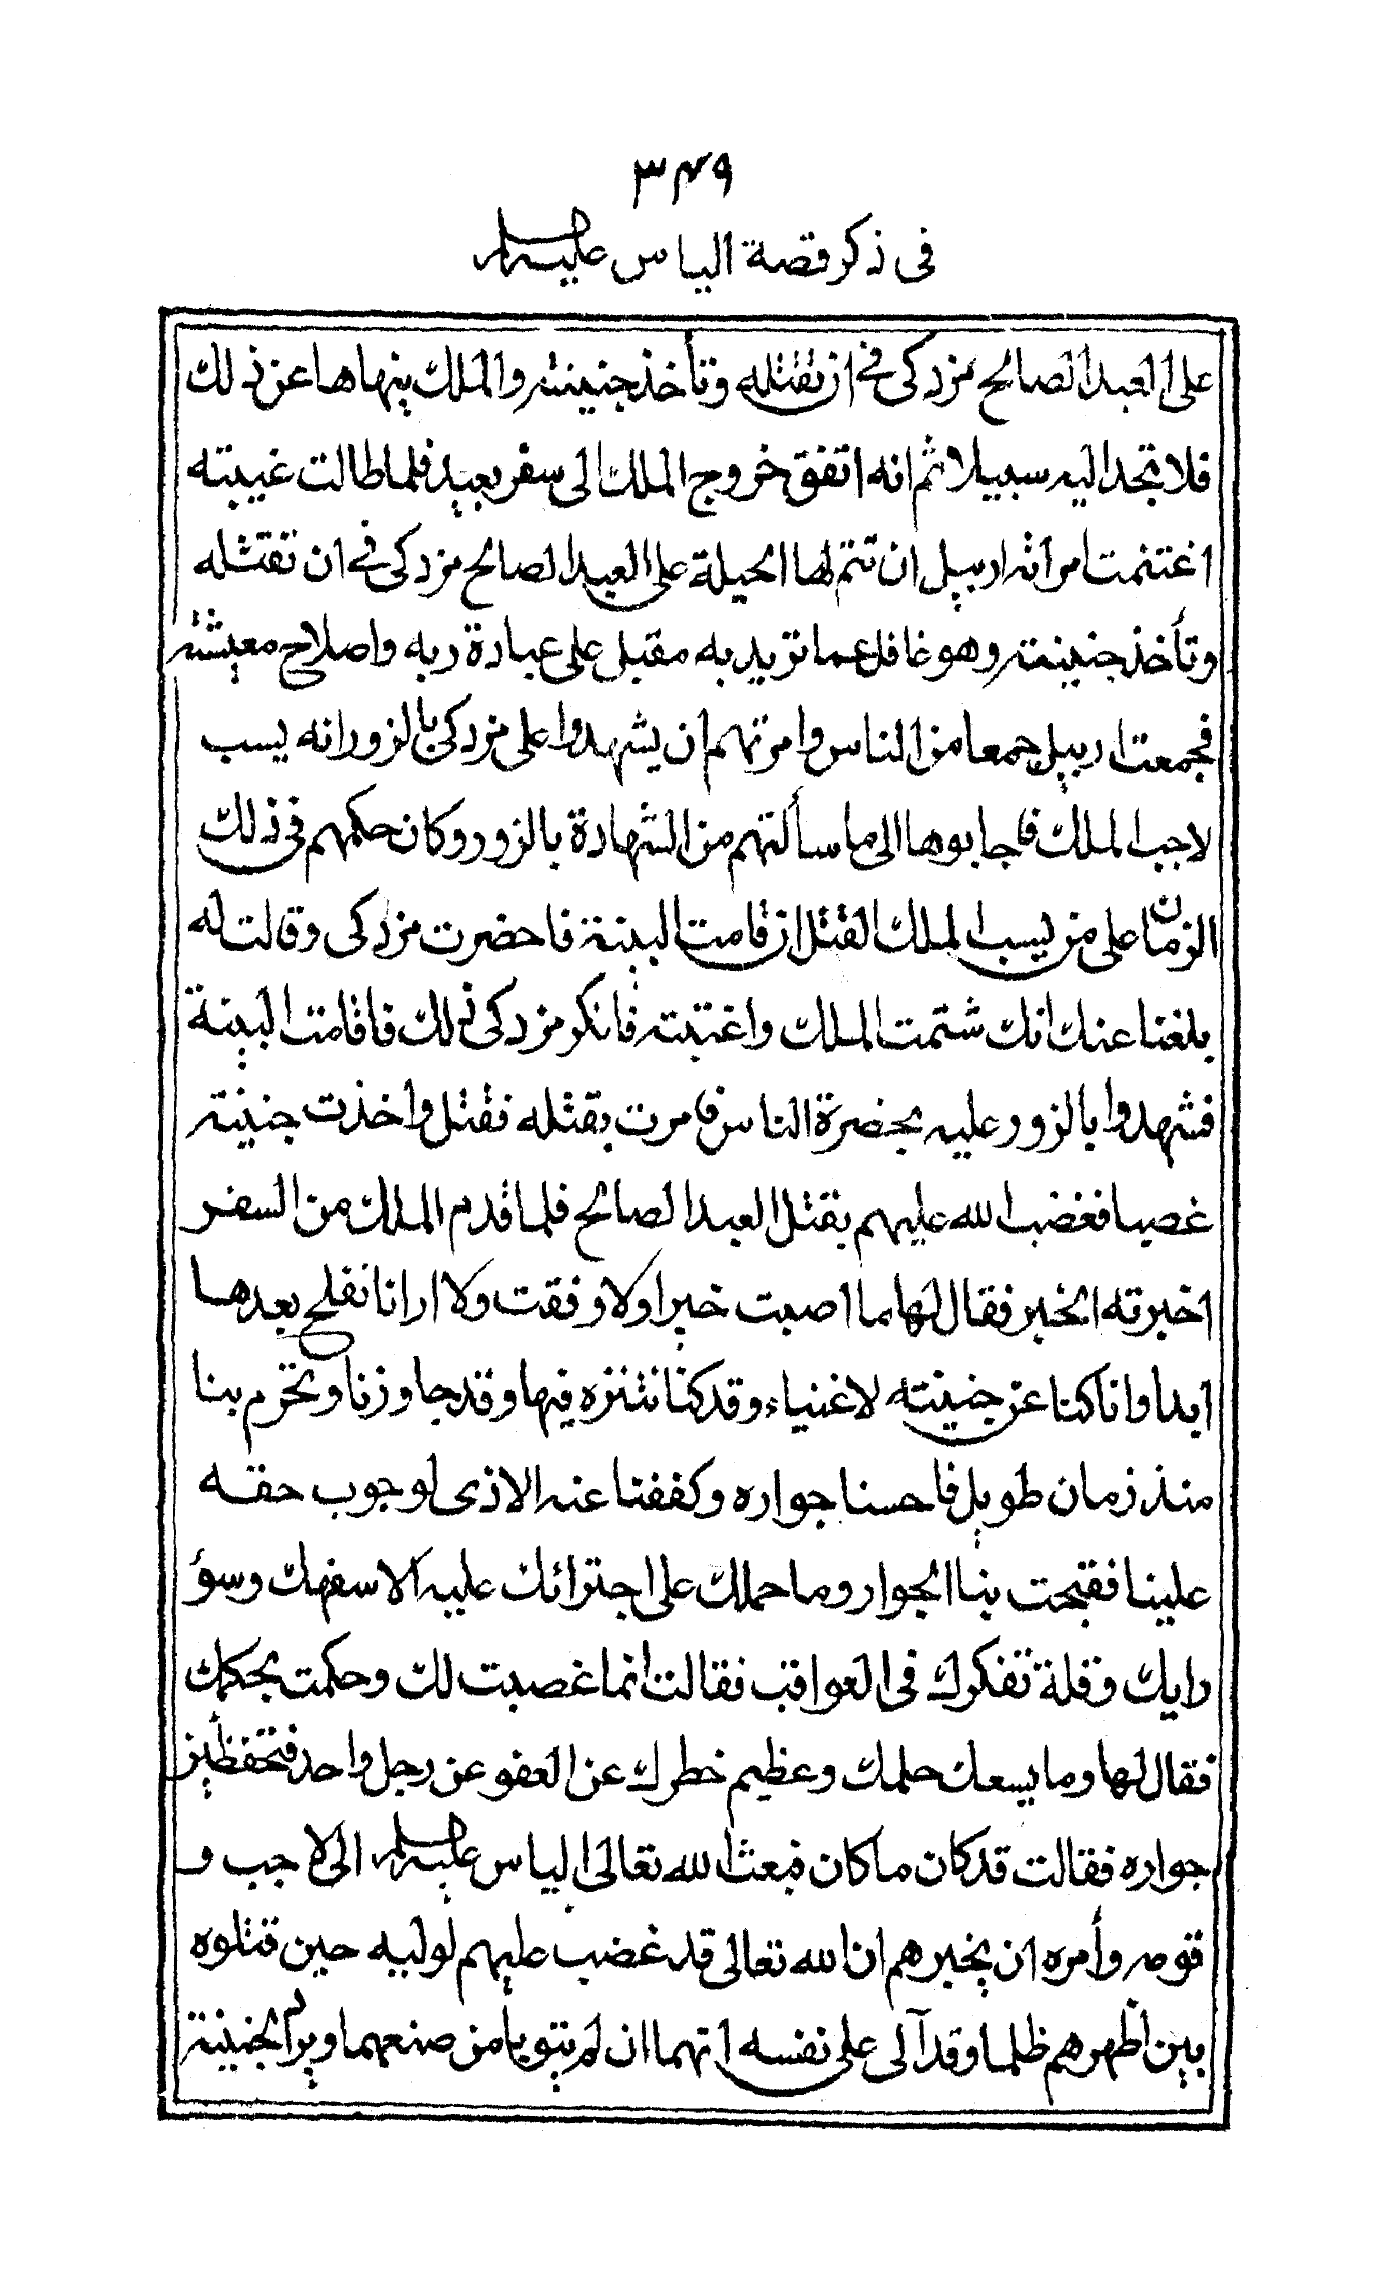 ٣٤٩
في ذكر قصة الياس عليه السلام
على العبد الصالح مزدكى في ان تقتله وتأخذ جنينته والملك ينهاها عن ذلك
فلا تجد اليه سبيلا ثم انه اتفق خروج الملك الى سفر بعيد فلما طالت غيبته
اغتنمت امرأته اربيل ان تتم لها الحيلة على العبد الصالح مزدكى في ان تقتله
وتأخذ جنينته وهو غافل عما تريد به مقبل على عبادة ربه واصلاح معيشته
فجمعت اربيل جمعا من الناس وامرتهم ان يشهدوا على مزدكى بالزور انه يسب
لاجب الملك فاجابوها الى ما سألتهم من الشهادة بالزور وكان حكمهم في ذلك
الزمان على من يسب الملك القتل ان قامت البينة فاحضرت مزدكى وقالت له
بلغنا عنك انك شتمت الملك واغتبته فانكر مزدكى ذلك فاقامت البينة
فشهدوا بالزور عليه بحضرة الناس فامرت بقتله فقتل واخذت جنينته
غصبا فغضب الله عليهم بقتل العبد الصالح فلما قدم الملك من السفر
اخبرته الخبر فقال لها ما اصبت خيرا ولا وفقت ولا ارانا نفلح بعدها
ابدا وانا كنا عن جنينته لاغنياء وقد كنا نتنزه فيها وقد جاورنا وتحرم بنا
منذ زمان طويل فاحسنا جواره وكففنا عنه الاذى لوجوب حقه
علينا فقبحت بنا الجوار وما حملك على اجترائك عليه الا سفهك وسوؤ
رايك وقلة تفكرك في العواقب فقالت انما غصبت لك وحكمت بحكمك
فقال لها وما يسعك حلمك وعظيم خطرك عن العفو عن رجل واحد فتحفظين
جواره فقالت قد كان ما كان فبعث الله تعالى الياس عليه السلام الى لاجب و
قومه وأمره ان يخبرهم ان الله تعالى قد غضب عليهم لوليه حين قتلوه
بين اظهرهم ظلما وقد آلى على نفسه انهما ان لم يتوبا من صنعهما ويردا الجنينة